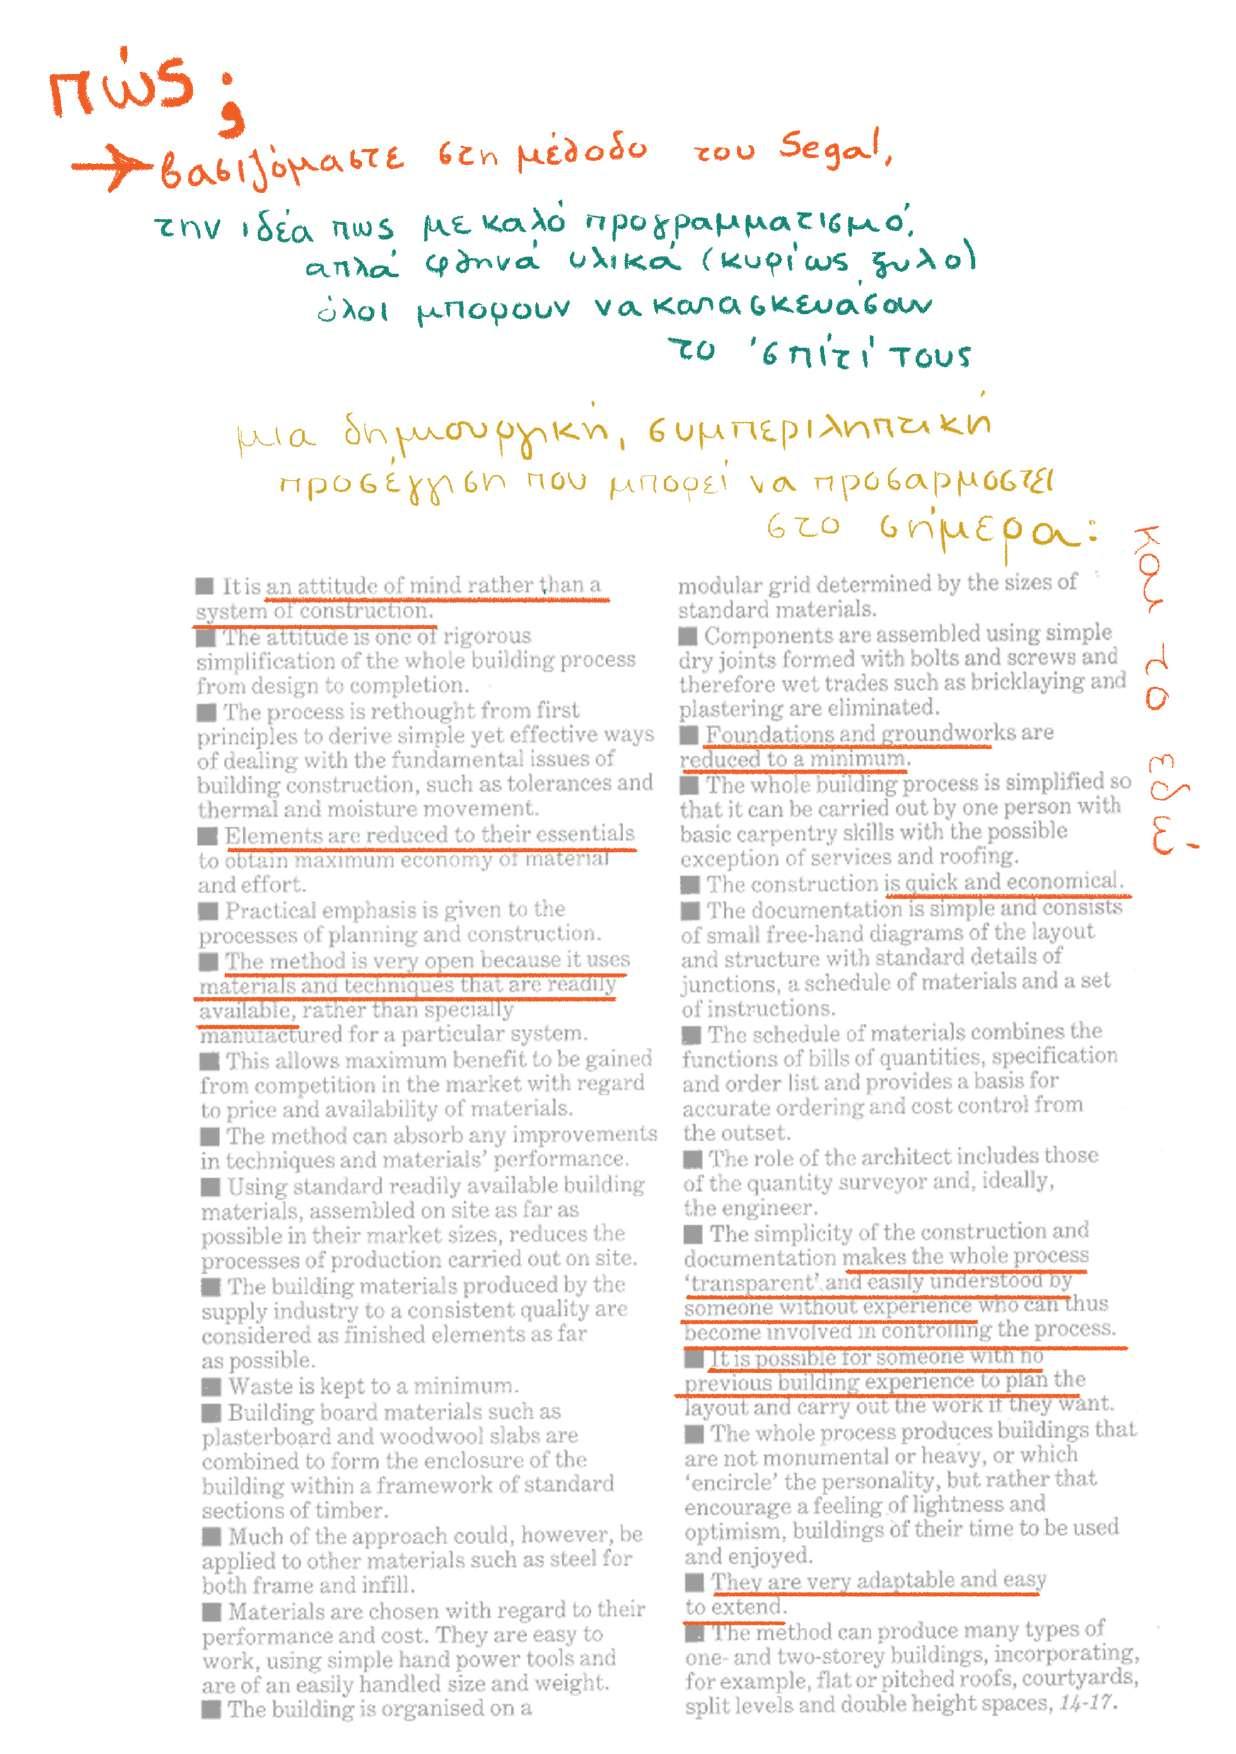 πώς;
→ βασιζόμαστε στη μέθοδο του Segal,
την ιδέα πως με καλό προγραμματισμό,
απλά φθηνά υλικά (κυρίως ξυλο)
όλοι μπορουν να κατασκευάσουν
το 'σπίτι' τους
μια δημιουργική, συμπεριληπτική
προσέγγιση που μπορεί να προσαρμοστει
στο σήμερα:
και το εδώ.
■ It is an attitude of mind rather than a
system of construction.
■ The attitude is one of rigorous
simplification of the whole building process
from design to completion.
■ The process is rethought from first
principles to derive simple yet effective ways
of dealing with the fundamental issues of
building construction, such as tolerances and
thermal and moisture movement.
■ Elements are reduced to their essentials
to obtain maximum economy of material
and effort.
■ Practical emphasis is given to the
processes of planning and construction.
■ The method is very open because it uses
materials and techniques that are readily
available, rather than specially
manufactured for a particular system.
■ This allows maximum benefit to be gained
from competition in the market with regard
to price and availability of materials.
■ The method can absorb any improvements
in techniques and materials' performance.
■ Using standard readily available building
materials, assembled on site as far as
possible in their market sizes, reduces the
processes of production carried out on site.
■ The building materials produced by the
supply industry to a consistent quality are
considered as finished elements as far
as possible.
■ Waste is kept to a minimum.
■ Building board materials such as
plasterboard and woodwool slabs are
combined to form the enclosure of the
building within a framework of standard
sections of timber.
■ Much of the approach could, however, be
applied to other materials such as steel for
both frame and infill.
■ Materials are chosen with regard to their
performance and cost. They are easy to
work, using simple hand power tools and
are of an easily handled size and weight.
■ The building is organised on a
modular grid determined by the sizes of
standard materials.
■ Components are assembled using simple
dry joints formed with bolts and screws and
therefore wet trades such as bricklaying and
plastering are eliminated.
■ Foundations and groundworks are
reduced to a minimum.
■ The whole building process is simplified so
that it can be carried out by one person with
basic carpentry skills with the possible
exception of services and roofing.
■ The construction is quick and economical.
■ The documentation is simple and consists
of small free-hand diagrams of the layout
and structure with standard details of
junctions, a schedule of materials and a set
of instructions.
■ The schedule of materials combines the
functions of bills of quantities, specification
and order list and provides a basis for
accurate ordering and cost control from
the outset.
■ The role of the architect includes those
of the quantity surveyor and, ideally,
the engineer.
■ The simplicity of the construction and
documentation makes the whole process
'transparent' and easily understood by
someone without experience who can thus
become involved in controlling the process.
■ It is possible for someone with no
previous building experience to plan the
layout and carry out the work if they want.
■ The whole process produces buildings that
are not monumental or heavy, or which
'encircle' the personality, but rather that
encourage a feeling of lightness and
optimism, buildings of their time to be used
and enjoyed.
■ They are very adaptable and easy
to extend.
■ The method can produce many types of
one- and two-storey buildings, incorporating,
for example, flat or pitched roofs, courtyards,
split levels and double height spaces, 14-17.